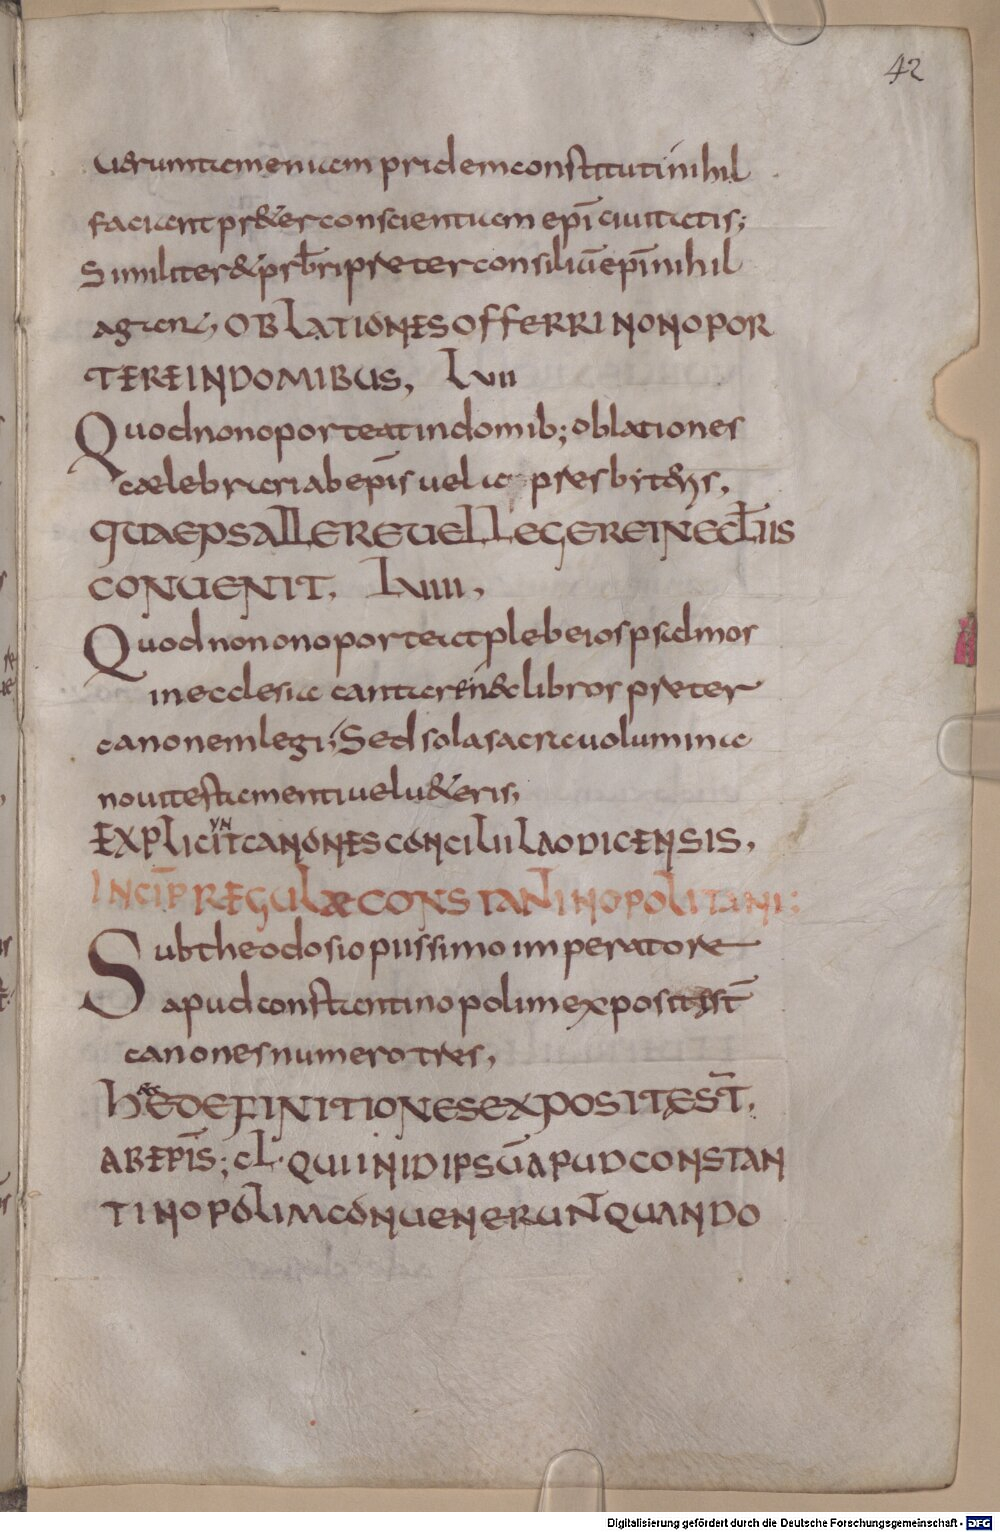 42
uerumtamen iam pridem constituti nihil
faciant pr&er conscientiam epi ciuitatis;
Similiter & prbri preter consiliu epi nihil
agant, OBLATIONES OFFERRI NON OPOR
TERE IN DOMIBUS, LVII
Quod non oporteat in domib; oblationes
caelebrari ab epis uel a presbyteris,
QUAE PSALLERE UEL LEGERE IN ECLIIS
CONUENIT, LVIIII,
Quod non onoporteat plebeios psalmos
in ecclesia cantare nec libros preter
canonem legi, Sed sola sacra uolumina
noui testamenti uel u&eris,
EXPLICIUNT CANONES CONCILII LAODICENSIS,
INCIP REGULAE CONSTANTINOPOLITANI:
Sub theodosio piissimo imperatore
apud constantinopolim expositi st
canones numero tres,
HAE DEFINITIONES EXPOSITE ST,
AB EPIS; CL. QUI IN IDIPSU APUD CONSTAN
TINOPOLIM CONUENERUNT QUANDO
Digitalisierung gefördert durch die Deutsche Forschungsgemeinschaft - DFG